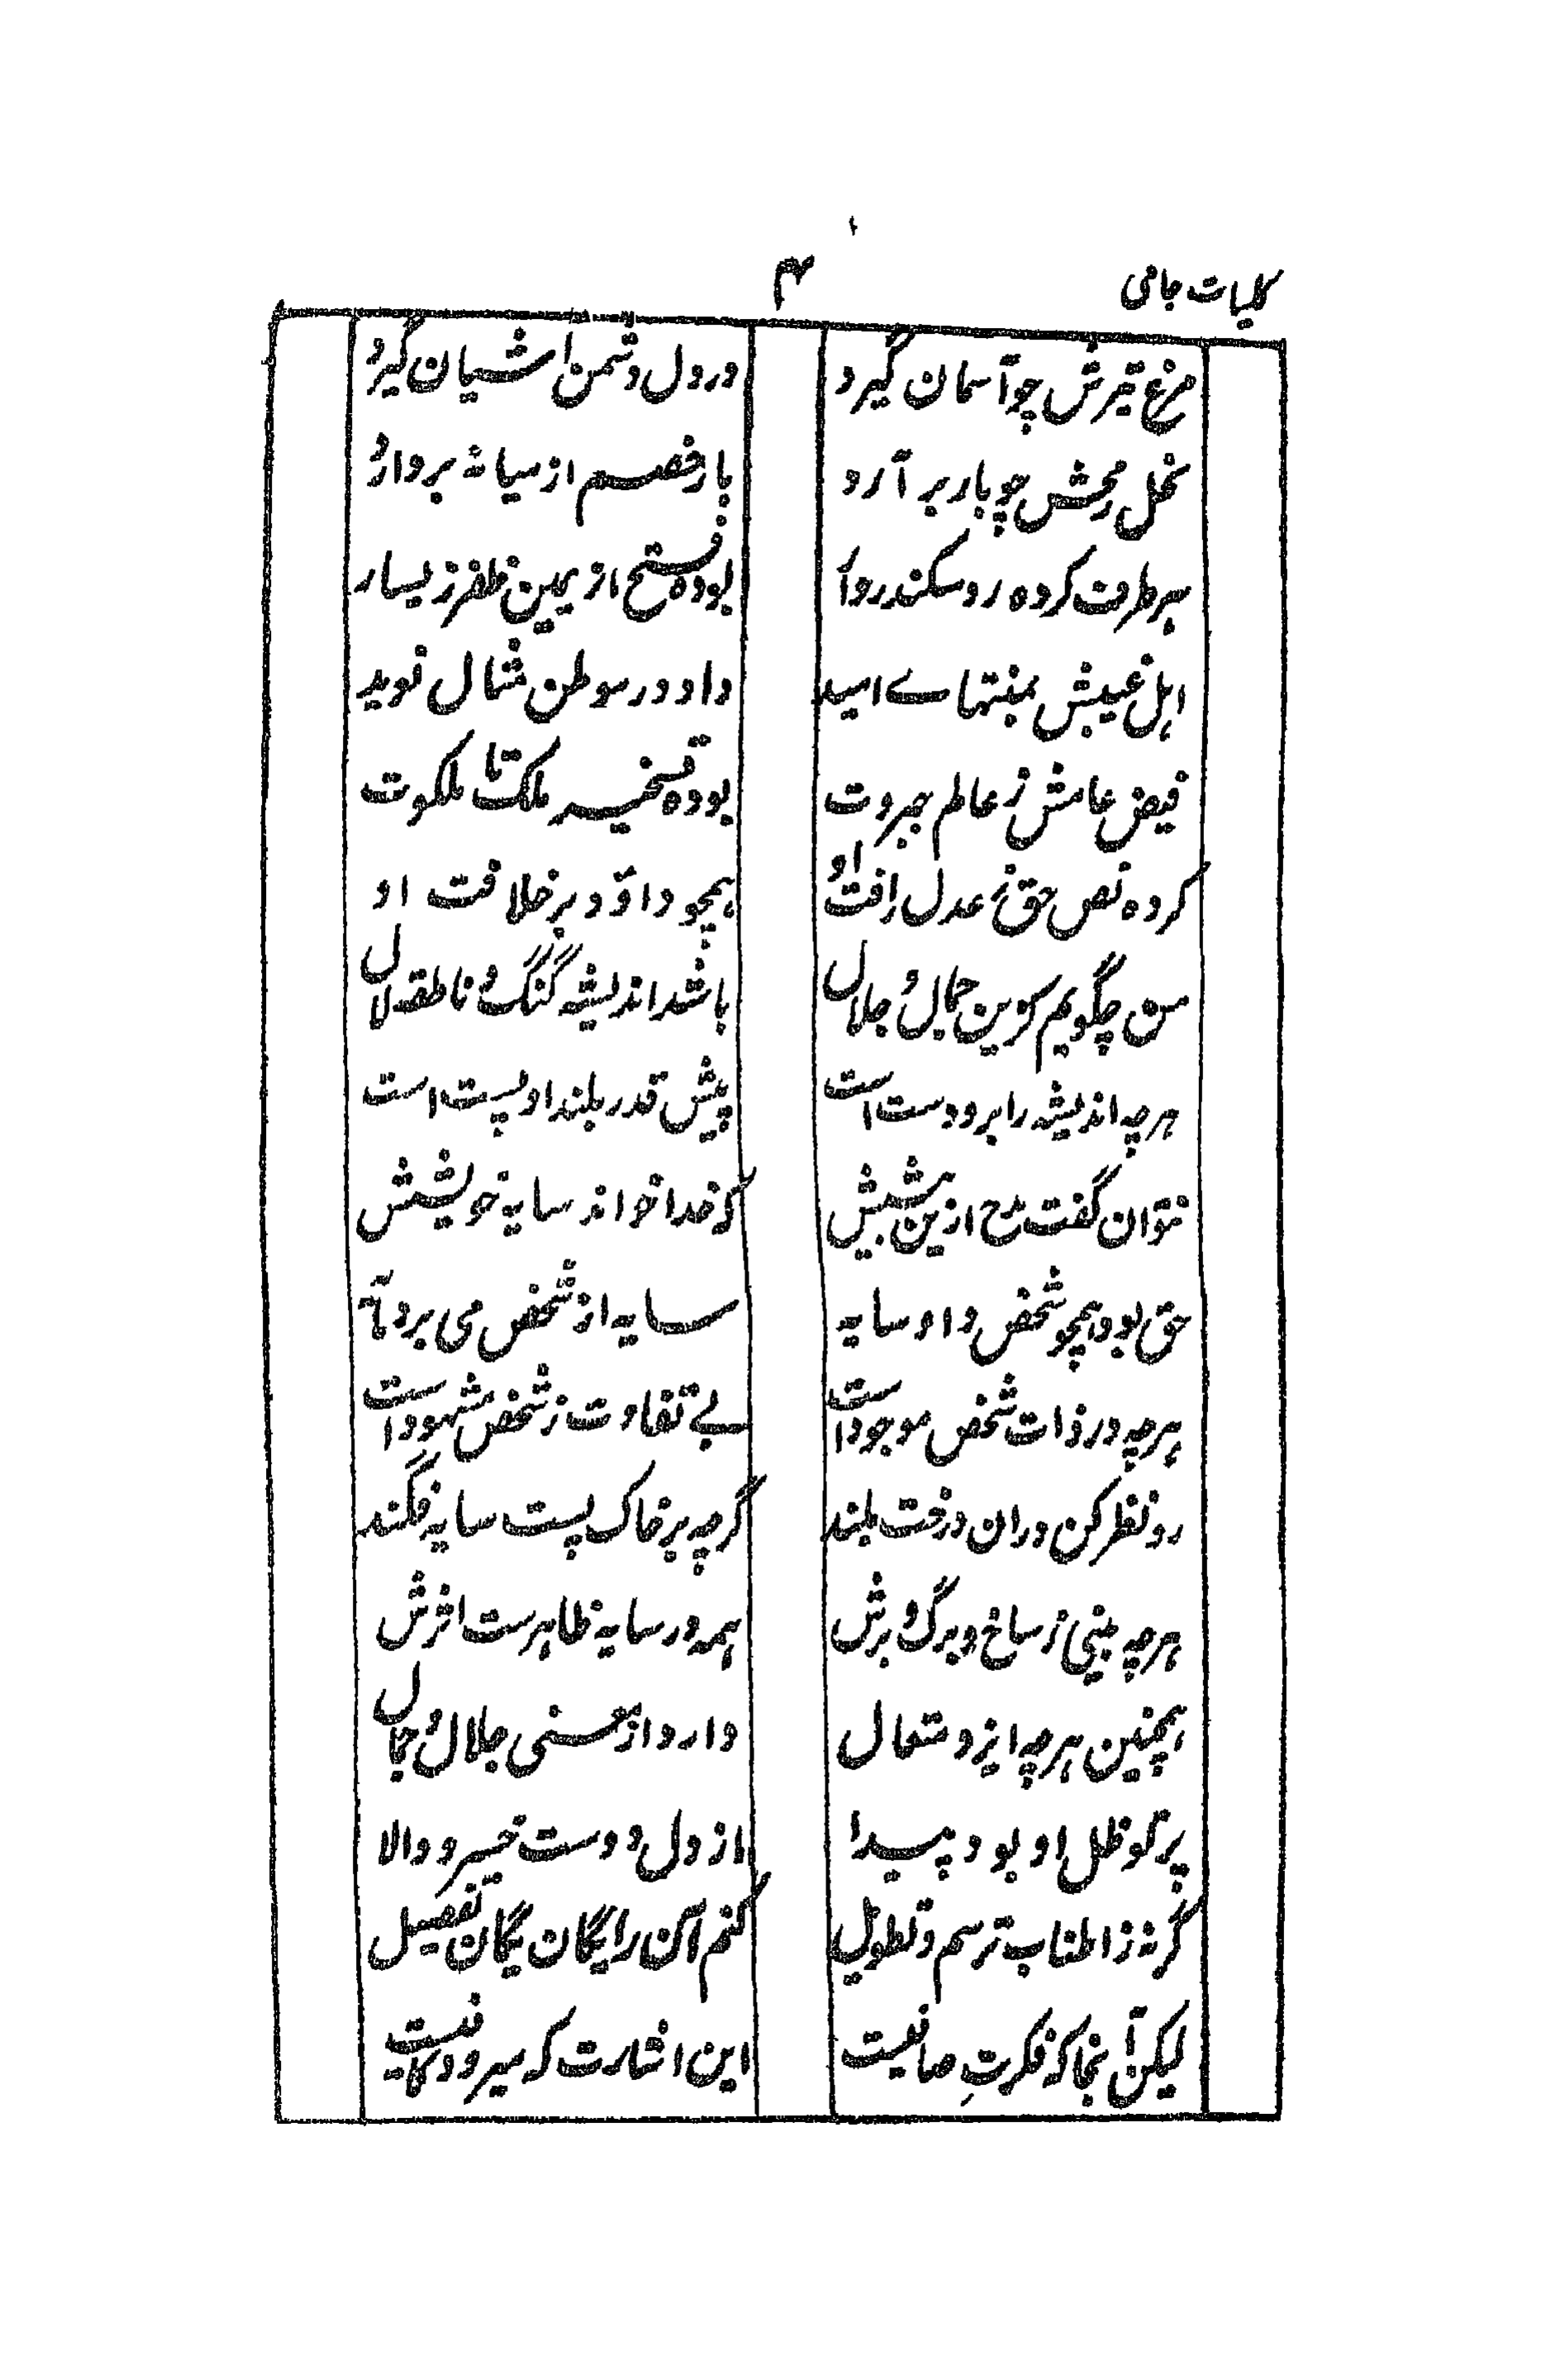 کلیات جامی
۴
مرغ تیرش چو آسمان گیرد
در دل دشمن آشیان گیرد
نخل رمحش چو بار بر آرد
بار خصم از میانه بردارد
بهر طرف کرده رو سکندروار
بوده فتح از یمین ظفر ز یسار
اهل عیش بمنتهاے امید
داد در موطن مثال نوید
فیض عامش ز عالم جبروت
بوده تسخیر ملک تا ملکوت
کرده نص حق ز عدل رافت او
همچو داؤد بر خلافت او
من چگویم کزین جمال و جلال
باشد اندیشه گنگ و ناطقه لال
هرچه اندیشه را برو دست است
پیش قدر بلند او پست است
نتوان گفت مدح ازین بیشش
که خدا خواند سایهٔ خویشش
حق بود همچو شخص و او سایه
سایه از شخص می برد مایه
هرچه در ذات شخص موجود است
بے تفاوت ز شخص مشهود است
رو نظر کن دران درخت بلند
گرچه بر خاک پست سایه فگند
هرچه بینی ز ساخ و برگ و برش
همه در سایه ظاهرست اثرش
همچنین هرچه ایزد متعال
دارد از معنی جلال و جمال
پرتو ظل او بود پیدا
از دل و دست خسرو والا
گرنه ز اطناب ترسم و تطویل
کنم آن را یگان یگان تفصیل
لیکن آنجا که فکرت صافیست
این اشارت که میرود کافیست